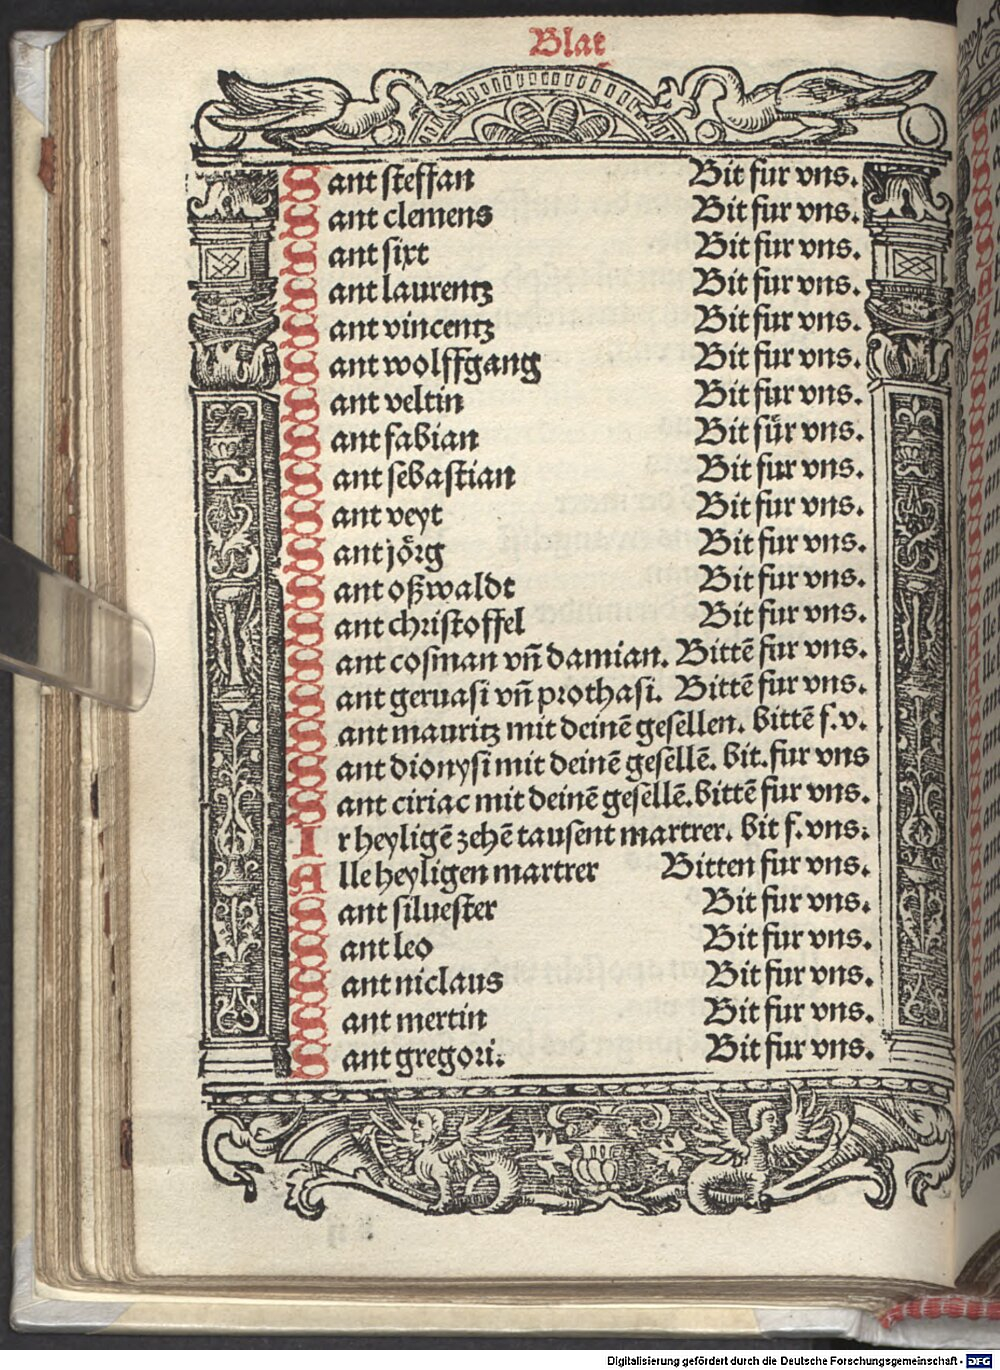 Blat
Sant steffan Bit fur vns.
Sant clemens Bit fur vns.
Sant sixt Bit fur vns.
Sant laurentz Bit fur vns.
Sant vincentz Bit fur vns.
Sant wolffgang Bit fur vns.
Sant veltin Bit fur vns.
Sant fabian Bit für vns.
Sant sebastian Bit fur vns.
Sant veyt Bit fur vns.
Sant jörg Bit fur vns.
Sant oßwaldt Bit fur vns.
Sant christoffel Bit fur vns.
Sant cosman vñ damian. Bittē fur vns.
Sant geruasi vñ prothasi. Bittē fur vns.
Sant mauritz mit deinē gesellen. bittē f.v.
Sant dionysi mit deinē gesellē. bit.fur vns
Sant ciriac mit deinē gesellē.bittē fur vns.
Ir heyligē zehē tausent martrer. bit f.vns.
Alle heyligen martrer Bitten fur vns.
Sant siluester Bit fur vns.
Sant leo Bit fur vns.
Sant niclaus Bit fur vns.
Sant mertin Bit fur vns.
Sant gregori. Bit fur vns.
Digitalisierung gefördert durch die Deutsche Forschungsgemeinschaft - DFG